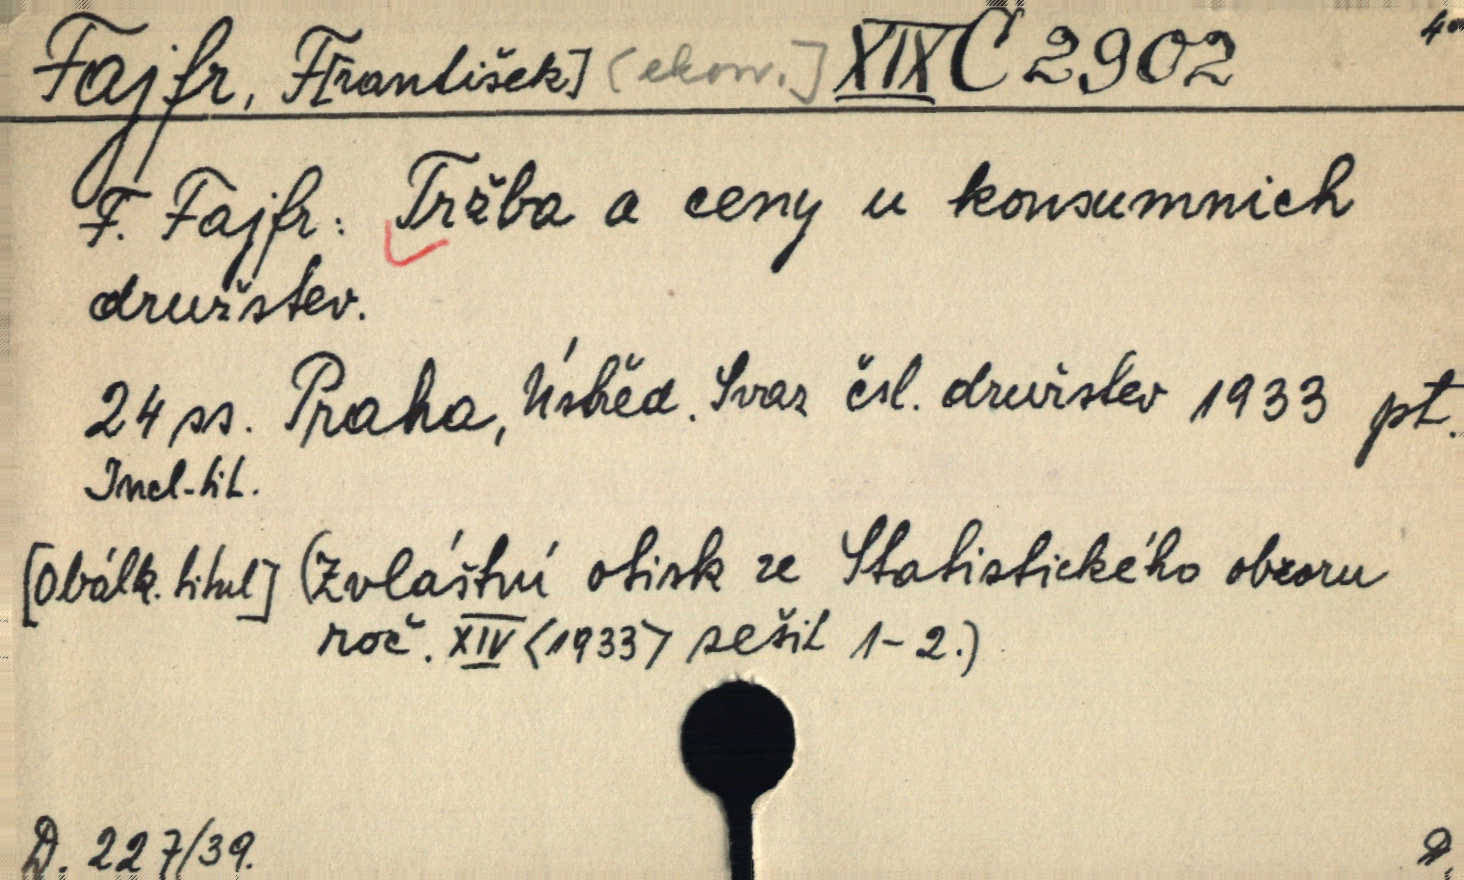 Fajfr, F[rantišek] (ekon.] XIX C 2902
F. Fajfr: Tržba a ceny u konsumnich
družstev.
24 ss. Praha, Ústřed. Svaz čsl. družstev 1933 pt.
Incl. tit.
[Obálk. titul] (Zvláštní otisk ze Statistického obzoru
roč. XIV <1933> sešit 1-2.)
D. 227/39.